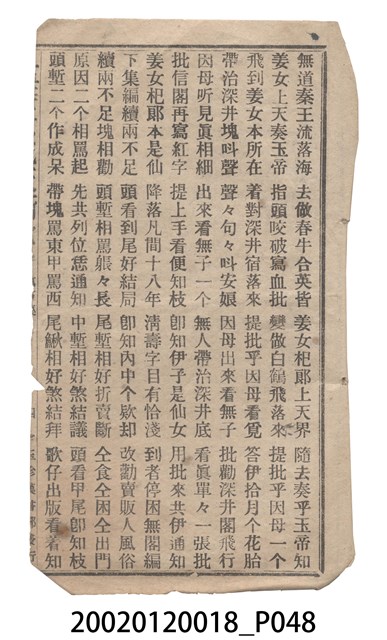 無道秦王流落海 去做春牛合英皆 姜女杞郎上天界 隨去奏乎玉帝知
姜女上天奏玉帝 指頭咬破寫血批 變做白鶴飛落來 提批乎因母一个
飛到姜女本所在 着對深井宿落來 提批乎因母看覓 答伊拾月个花胎
帶治深井塊叫聲 聲々句々叫安娘 因母出來看無子 批勸深井閣飛行
因母听見眞相細 出來看無子一个 無人帶治深井底 看眞單々一張批
批信閣再寫紅字 提上手看便知枝 卽知伊子是仙女 用批來共伊通知
姜女杞郎本是仙 降落凡間十八年 淸壽字目有恰淺 到者停困無閣編
下集編續兩不足 頭看到尾好結局 卽知內中个欵却 改勸賣販人風俗
續兩不足塊相勸 頭塹相罵賬々長 尾塹相好折賣斷 仝食仝困仝出門
原因二个相罵起 先共列位恁通知 中塹相好煞結議 頭看甲尾卽知枝
頭塹二个作成呆 帶塊罵東甲罵西 尾鰍相好煞結拜 歌仔出版看着知
20020120018_P048